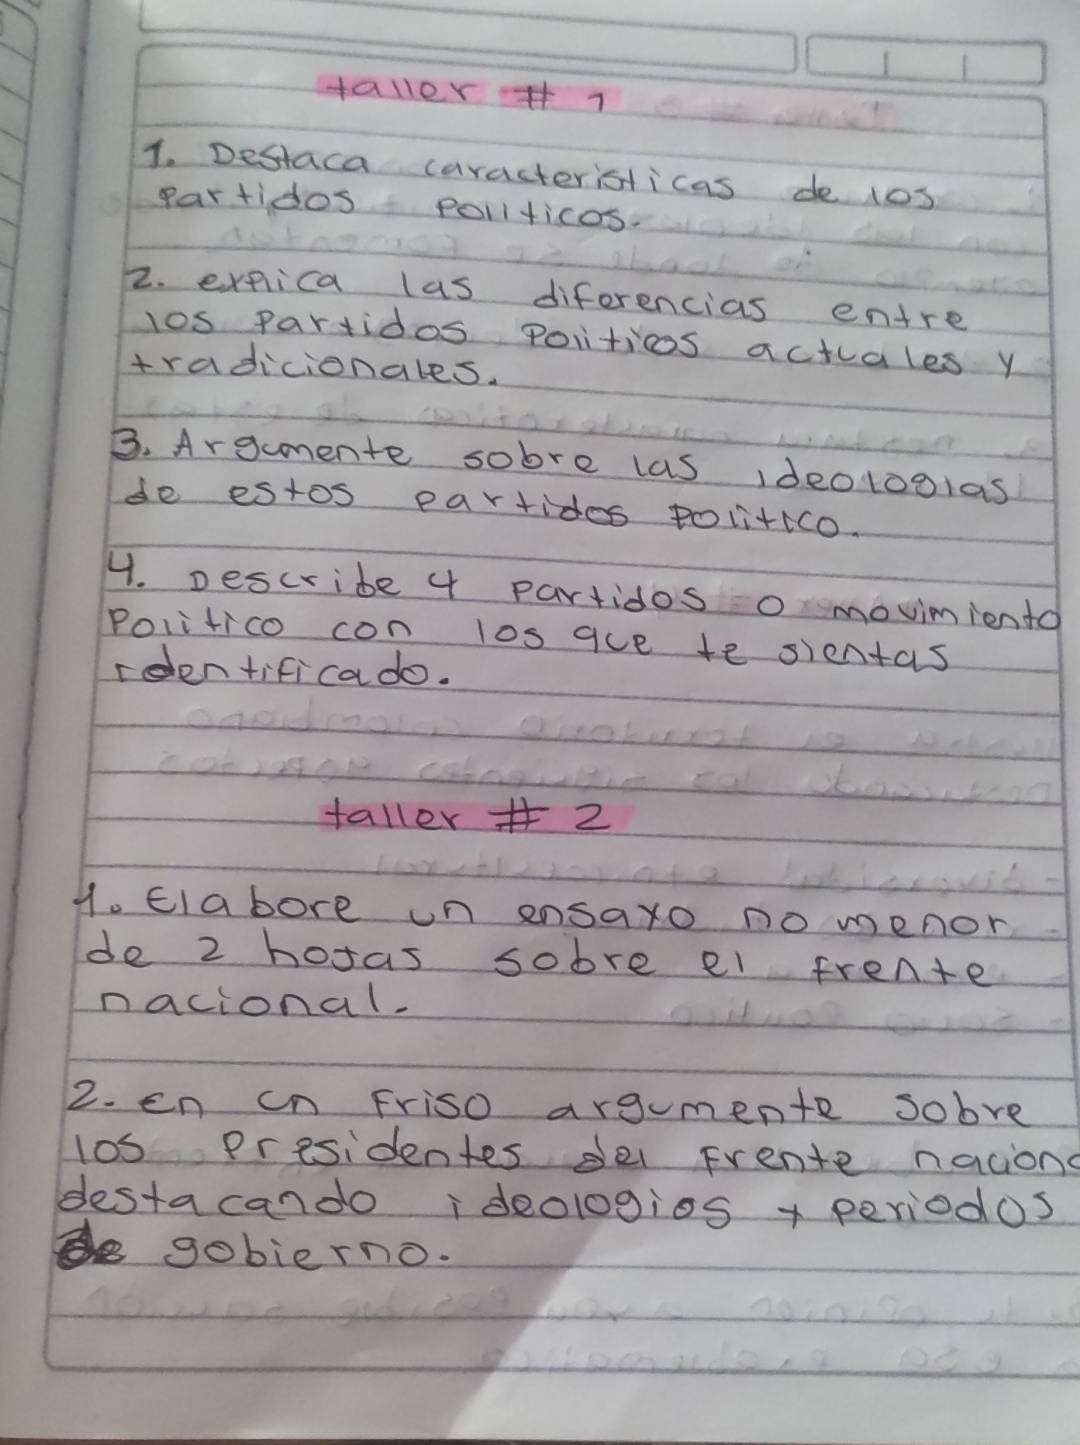 taller # 1
1. Destaca caracteristicas de los
partidos politicos.
2. explica las diferencias entre
los partidos politicos actuales y
tradicionales.
3. Argumente sobre las ideologias
de estos partidos politico.
4. Describe 4 partidos o movimiento
Politico con los que te sientas
identificado.
taller # 2
1. Elabore un ensayo no menor
de 2 hojas sobre el frente
nacional.
2. En un friso argumente sobre
los presidentes del Frente naciona
destacando ideologias y periodos
de gobierno.